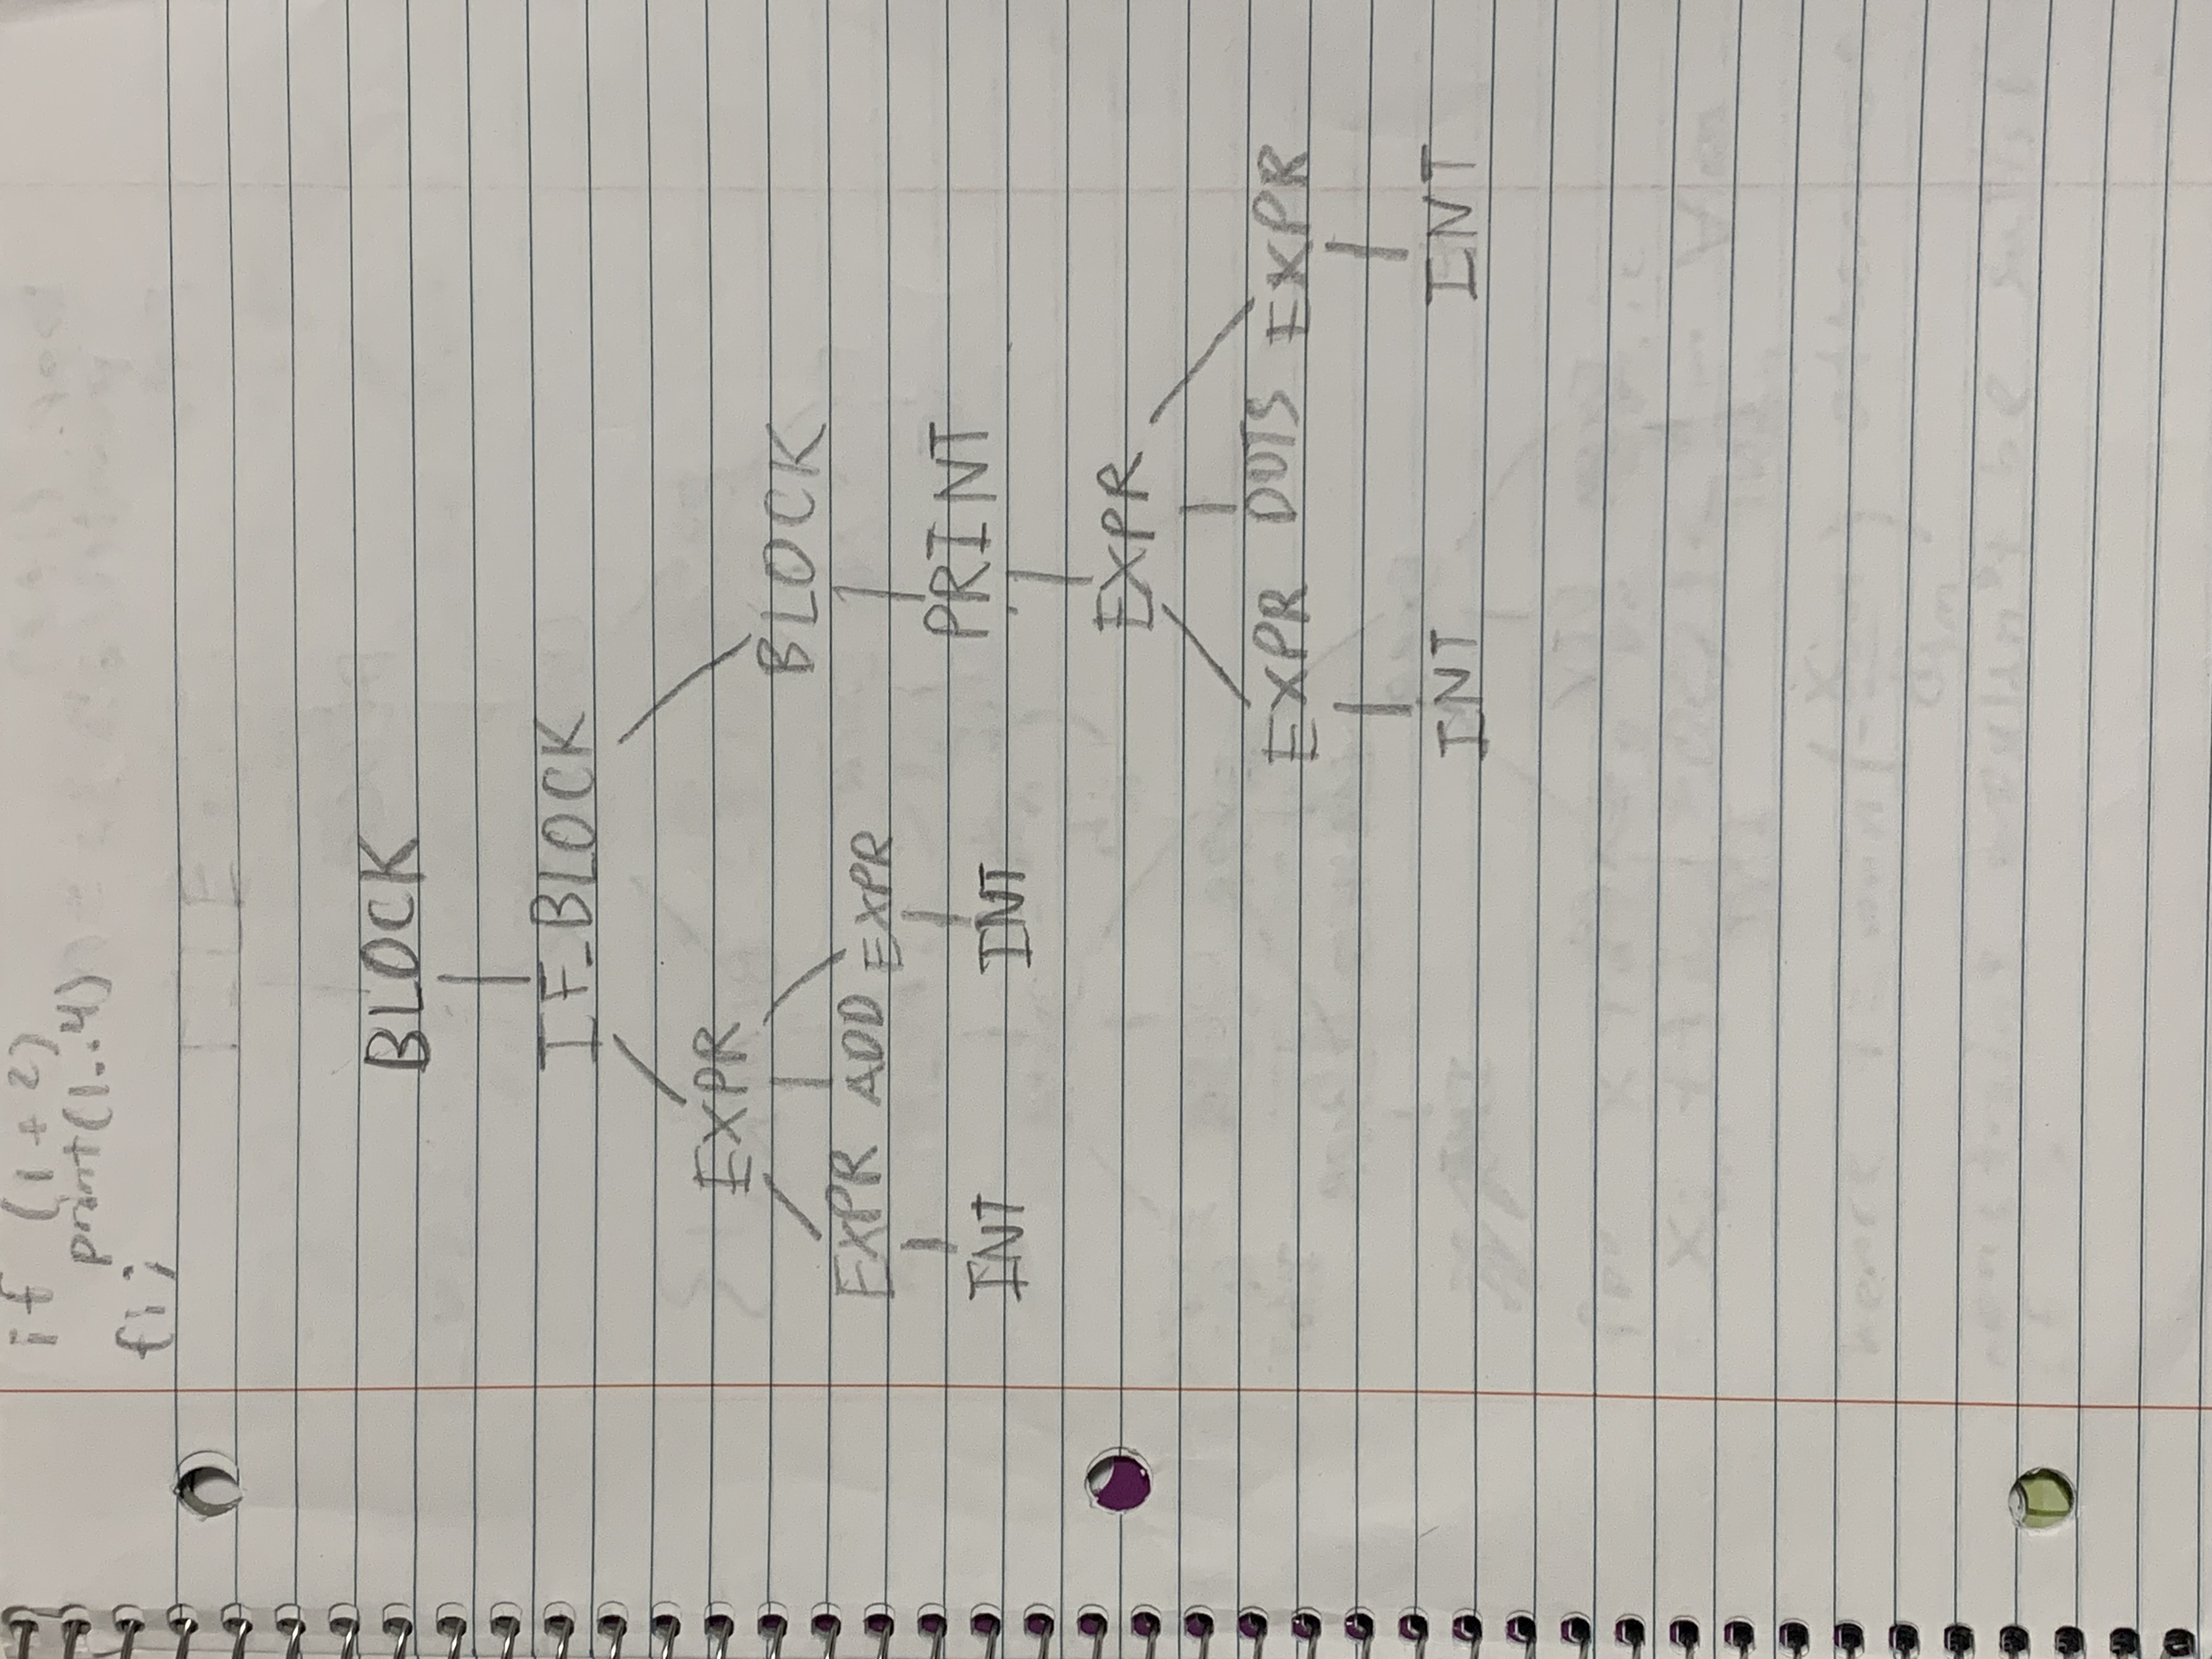 if (1 + 2)
print(1..4)
fi;
BLOCK
IF_BLOCK
EXPR
BLOCK
EXPR ADD EXPR
PRINT
INT INT
EXPR
EXPR DOTS EXPR
INT INT